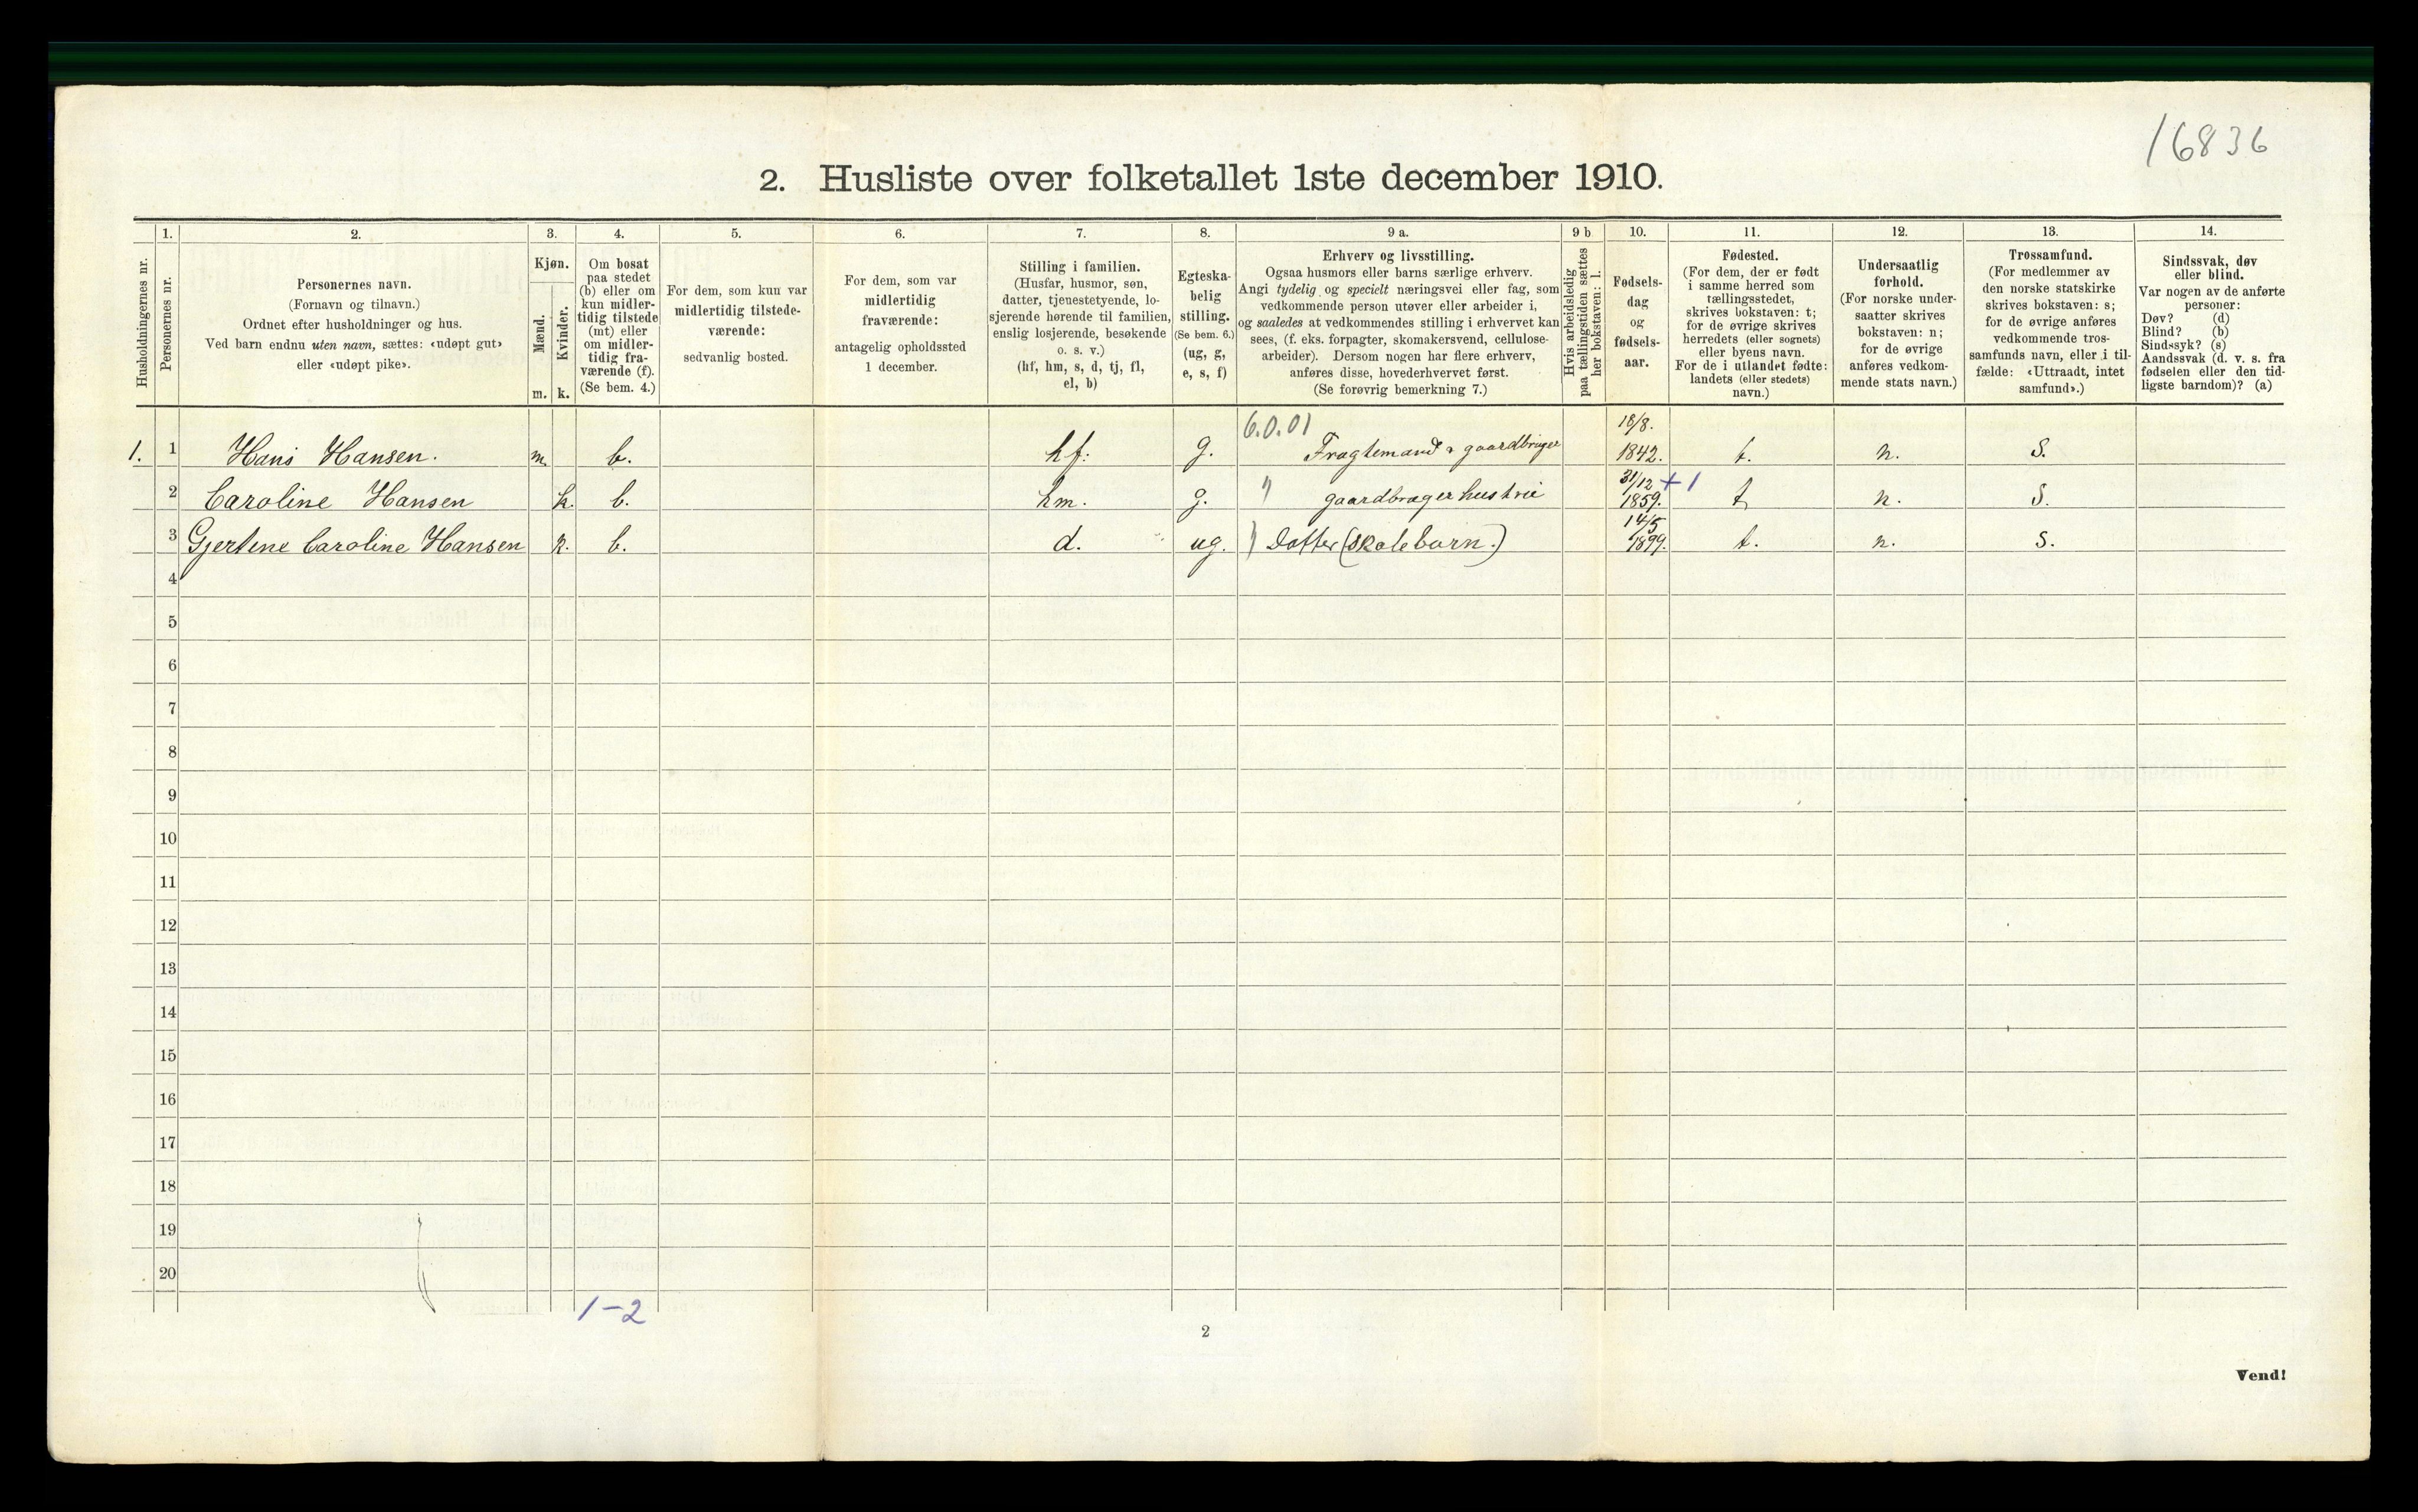 16836
2. Husliste over folketallet 1ste december 1910.
Husholdningernes nr.
1.
Personernes nr.
2.
Personernes navn.
(Fornavn og tilnavn.)
Ordnet efter husholdninger og hus.
Ved barn endnu uten navn, sættes: «udøpt gut»
eller «udøpt pike».
3.
Kjøn.
Mænd.
Kvinder.
m. k.
4.
Om bosat
paa stedet
(b) eller om
kun midler-
tidig tilstede
(mt) eller
om midler-
tidig fra-
værende (f).
(Se bem. 4.)
5.
For dem, som kun var
midlertidig tilstede-
værende:
sedvanlig bosted.
6.
For dem, som var
midlertidig
fraværende:
antagelig opholdssted
1 december.
7.
Stilling i familien.
(Husfar, husmor, søn,
datter, tjenestetyende, lo-
sjerende hørende til familien,
enslig losjerende, besøkende
o. s. v.)
(hf, hm, s, d, tj, fl,
el, b)
8.
Egteska-
belig
stilling.
(Se bem. 6.)
(ug, g,
e, s, f)
9 a.
Erhverv og livsstilling.
Ogsaa husmors eller barns særlige erhverv.
Angi tydelig og specielt næringsvei eller fag, som
vedkommende person utøver eller arbeider i,
og saaledes at vedkommendes stilling i erhvervet kan
sees, (f. eks. forpagter, skomakersvend, cellulose-
arbeider). Dersom nogen har flere erhverv,
anføres disse, hovederhvervet først.
(Se forøvrig bemerkning 7.)
9 b
Hvis arbeidsledig
paa tællingstiden sættes
her bokstaven: l.
10.
Fødsels-
dag
og
fødsels-
aar.
11.
Fødested.
(For dem, der er født
i samme herred som
tællingsstedet,
skrives bokstaven: t;
for de øvrige skrives
herredets (eller sognets)
eller byens navn.
For de i utlandet fødte:
landets (eller stedets)
navn.)
12.
Undersaatlig
forhold.
(For norske under-
saatter skrives
bokstaven: n;
for de øvrige
anføres vedkom-
mende stats navn.)
13.
Trossamfund.
(For medlemmer av
den norske statskirke
skrives bokstaven: s;
for de øvrige anføres
vedkommende tros-
samfunds navn, eller i til-
fælde: «Uttraadt, intet
samfund».)
14.
Sindssvak, døv
eller blind.
Var nogen av de anførte
personer:
Døv? (d)
Blind? (b)
Sindssyk? (s)
Aandssvak (d. v. s. fra
fødselen eller den tid-
ligste barndom)? (a)
1. 1 Hans Hansen. m. b. hf: g. 6.0.01 Fragtemand & gaardbruger 18/8. 1842. t. n. S.
2 Caroline Hansen k. b. hm. g. " gaardbruger hustrue 31/12 1859. + 1 t. n. S.
3 Gjertine Caroline Hansen k. b. d. ug. " Datter (skolebarn.) 14/5 1899. t. n. S.
4
5
6
7
8
9
10
11
12
13
14
15
16
17
18
19
20
1-2
2
Vend!